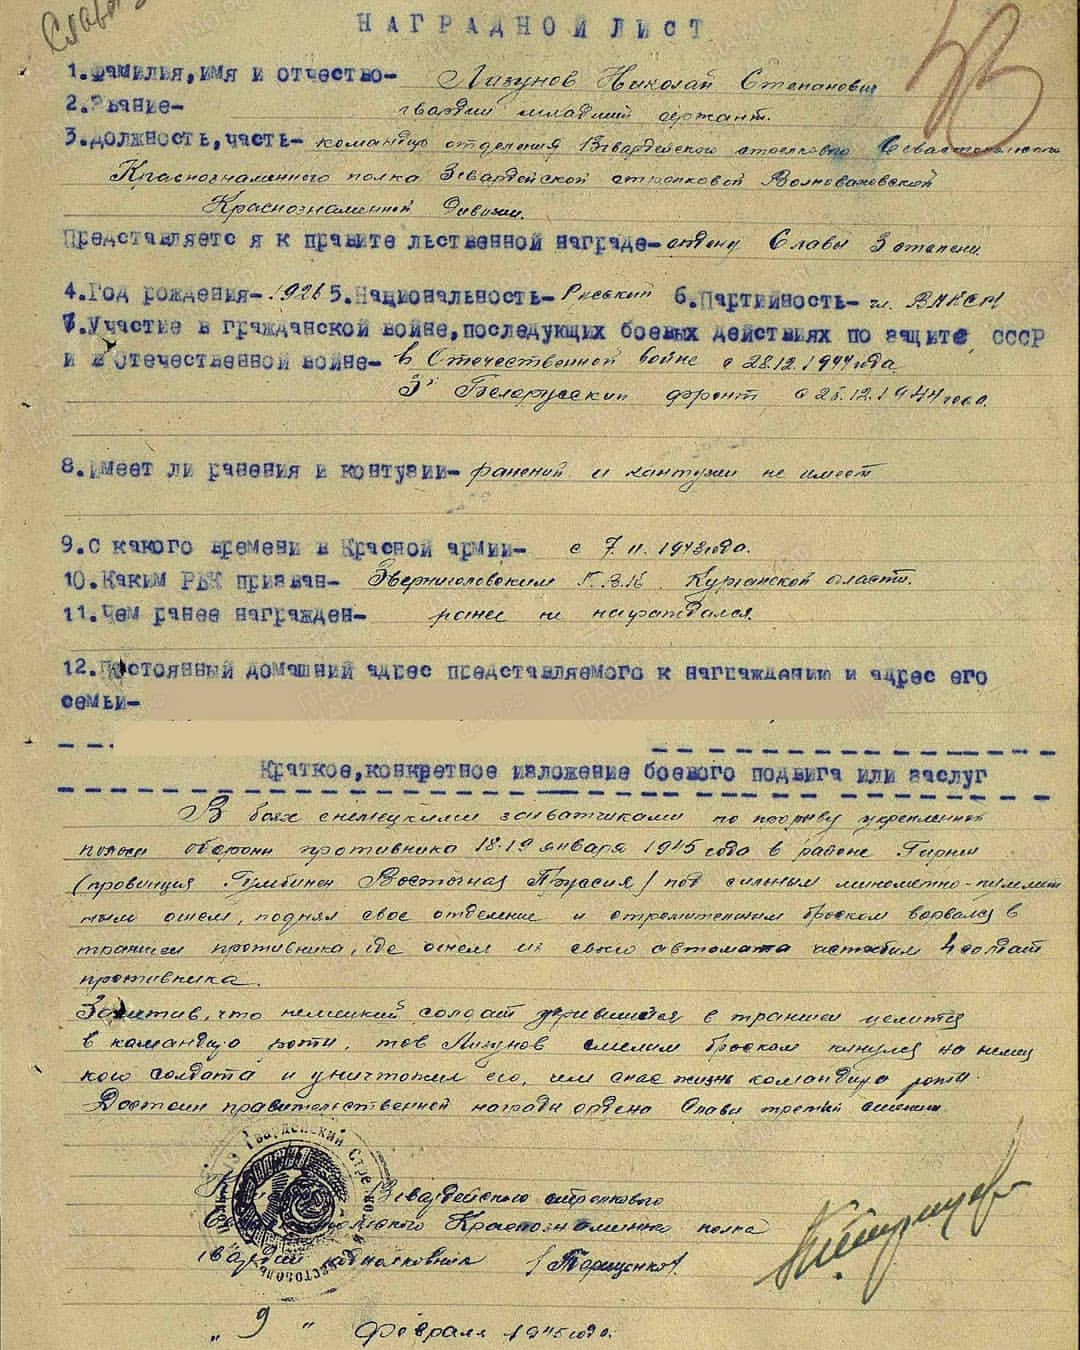 Слава 3
НАГРАДНОЙ ЛИСТ
1.Фамилия,имя и отчество- Лизунов Николай Степанович
2.Звание- гвардии младший сержант.
3.Должность,часть- командир отделения 13 гвардейского стрелкового Севастопольского
Краснознаменного полка 3 гвардейской стрелковой Волновахской
Краснознаменной дивизии.
Представляется к правительственной награде- ордену Славы 3 степени.
4.Год рождения- 1926 5.Национальность- Русский 6.Партийность- чл. ВЛКСМ
7.Участие в гражданской войне,последующих боевых действиях по защите СССР
и в Отечественной войне- в Отечественной войне с 28.12.1944 года.
3й Белорусский фронт с 28.12.1944 года.
8.Имеет ли ранения и контузии- ранений и контузии не имеет
9.С какого времени в Красной армии- с 7.11.1943 года.
10.Каким РВК призван- Звериноголовским Р.В.К. Курганской области.
11.Чем ранее награжден- ранее не награждался.
12.Постоянный домашний адрес представляемого к награждению и адрес его
семьи-
Краткое,конкретное изложение боевого подвига или заслуг
В боях с немецкими захватчиками по прорыву укрепленной
полосы обороны противника 18-19 января 1945 года в районе
(провинция Гумбинен Восточная Пруссия) под сильным минометно-пулемет
ным огнем, поднял свое отделение и стремительным броском ворвался в
траншеи противника, где огнем из своего автомата истребил 4 солдат
противника.
Заметив, что немецкий солдат в траншеи целится
в командира роты, тов Лизунов смелым броском кинулся на немец
кого солдата и уничтожил его, чем спас жизнь командира роты.
Достоин правительственной награды ордена Славы третьей степени
13 гвардейского стрелкового
Краснознаменного полка
гвардии подполковник /Терещенко/.
„ 9 " февраля 1945 года.